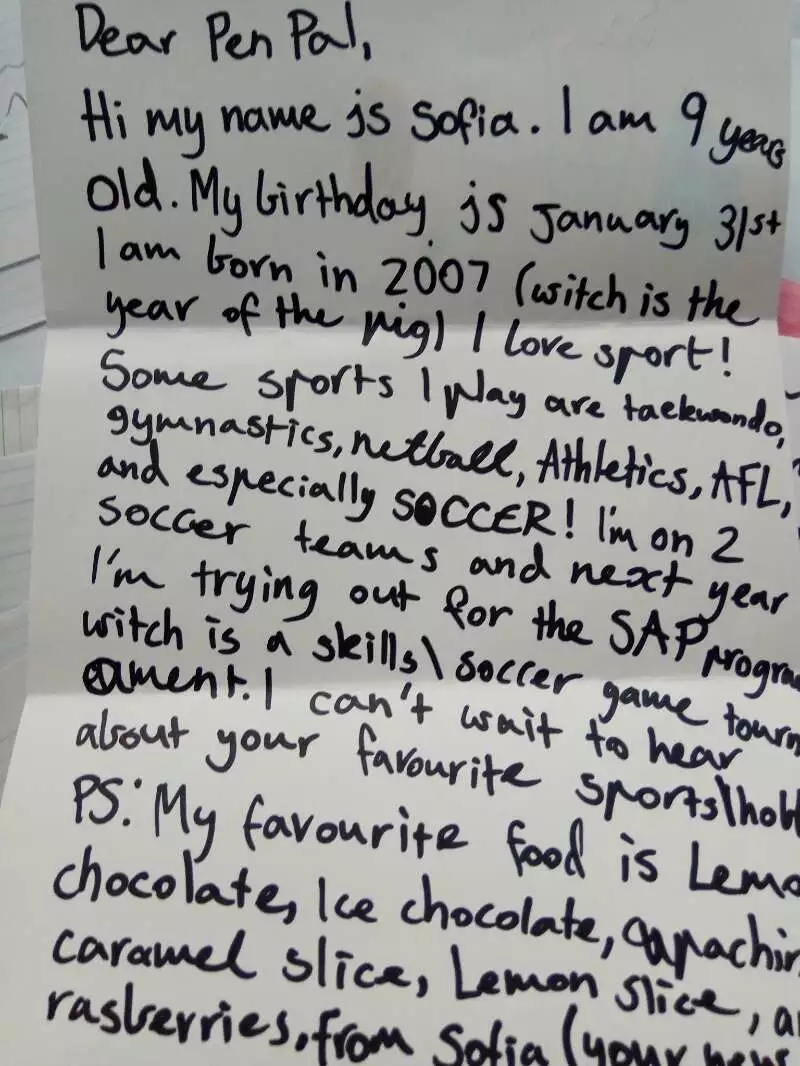 Dear Pen Pal,
Hi my name is Sofia. I am 9 years
old. My birthday is January 31st
I am born in 2007 (witch is the
year of the pig) I love sport!
Some sports I play are taekwondo,
gymnastics, netball, Athletics, AFL,
and especially SOCCER! I'm on 2
soccer teams and next year
I'm trying out for the SAP
witch is a skills\soccer game tourn
ament. I can't wait to hear
about your favourite sports\
PS: My favourite food is
chocolate, Ice chocolate,
caramel slice, Lemon slice,
rasberries, from Sofia (your